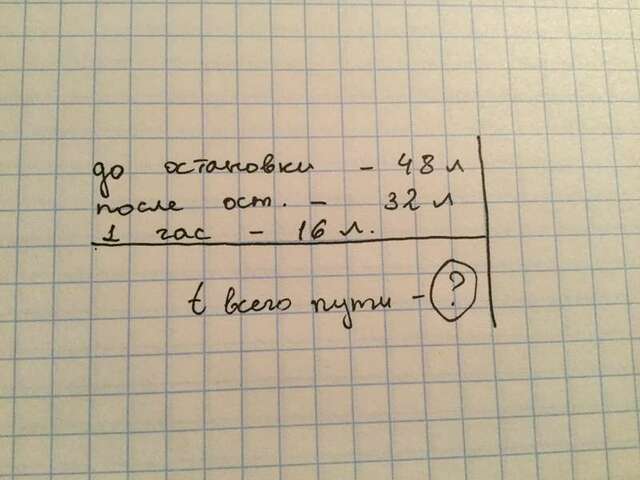 до остановки - 48 л
после ост. - 32 л
1 час - 16 л.
t всего пути - ?